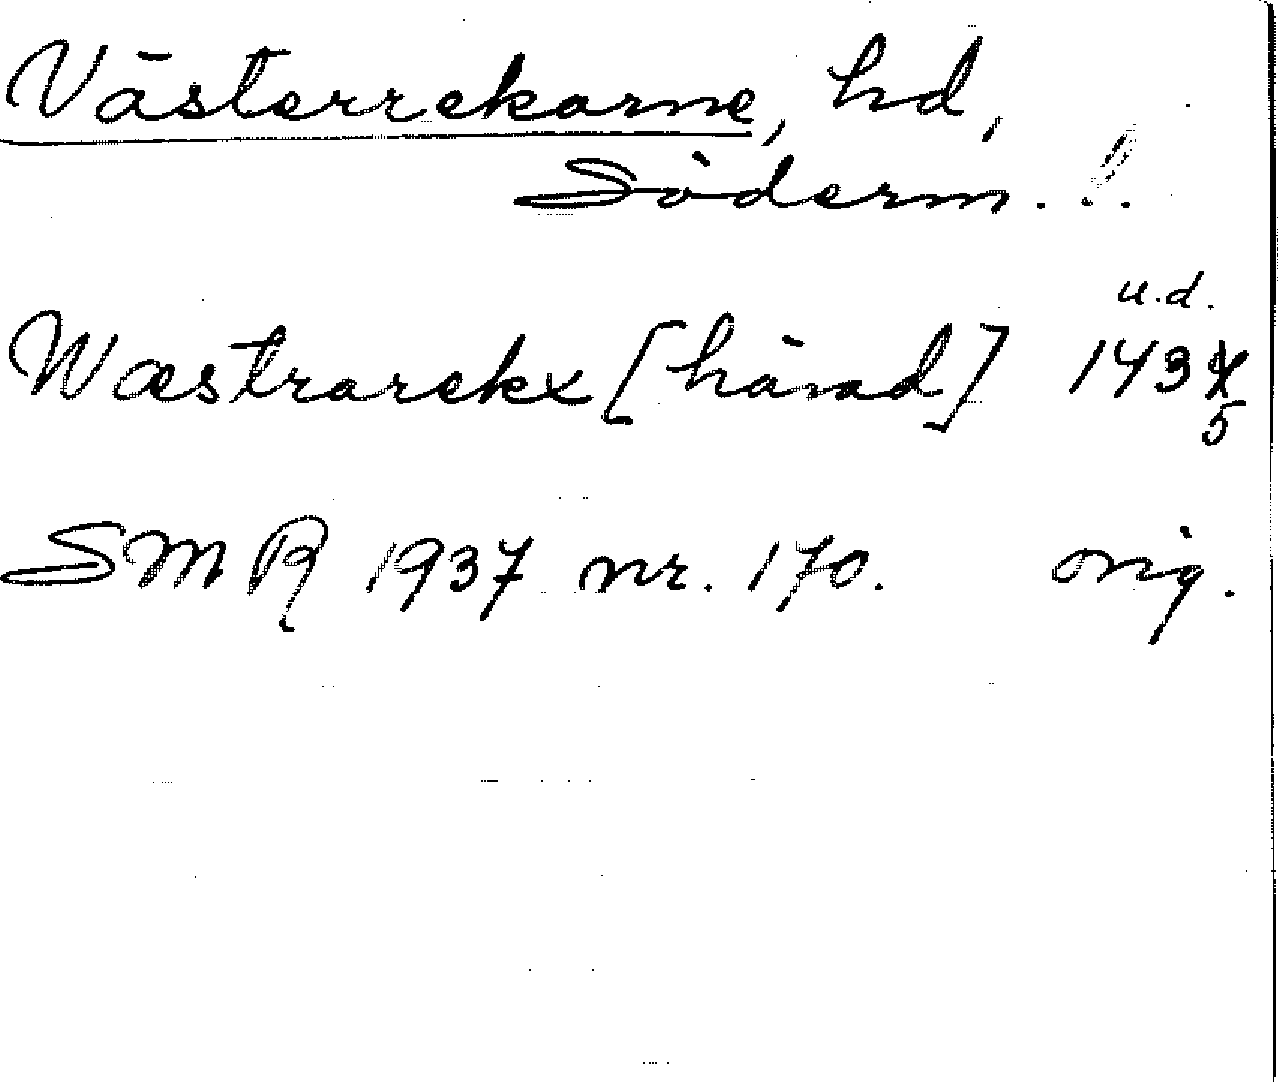 Västerrekarne, hd,
Söderm. !!
u.d.
Wæstrarekæ [härad] 143
5
SMR 1937 nr. 170. orig.